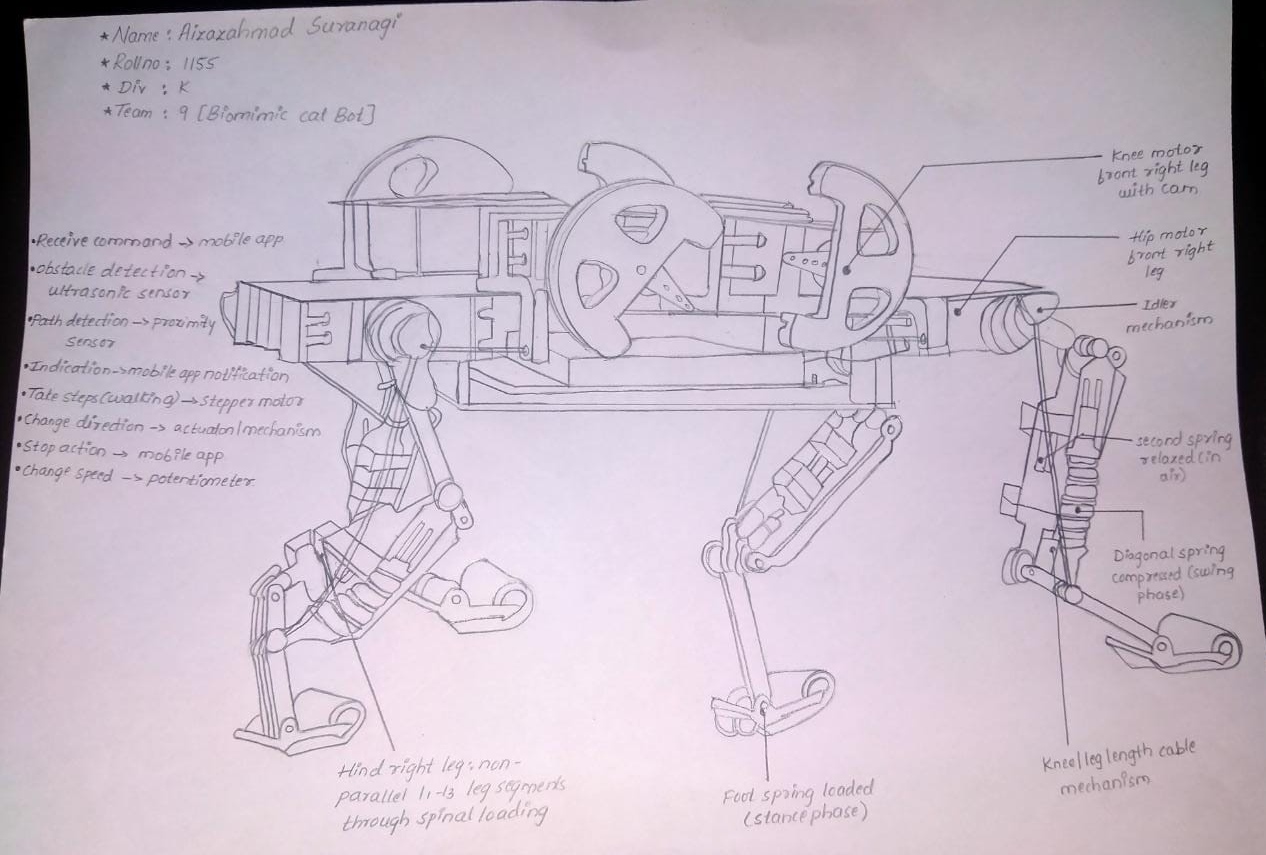 * Name : Aizazahmad Suranagi
* Rollno : 1155
* Div : K
* Team : 9 [Biomimic cat Bot]
•Receive command → mobile app
•obstacle detection →
ultrasonic sensor
•Path detection → proximity
sensor
•Indication → mobile app notification
•Take steps (walking) → stepper motor
•Change direction → actuaton/mechanism
•Stop action → mobile app
•Change speed → potentiometer
Knee motor
front right leg
with cam
Hip motor
front right
leg
Idler
mechanism
second spring
relaxed (in
air)
Diagonal spring
compressed (swing
phase)
Knee/leg length cable
mechanism
Foot spring loaded
(stance phase)
Hind right leg: non-
parallel l1-l3 leg segments
through spinal loading